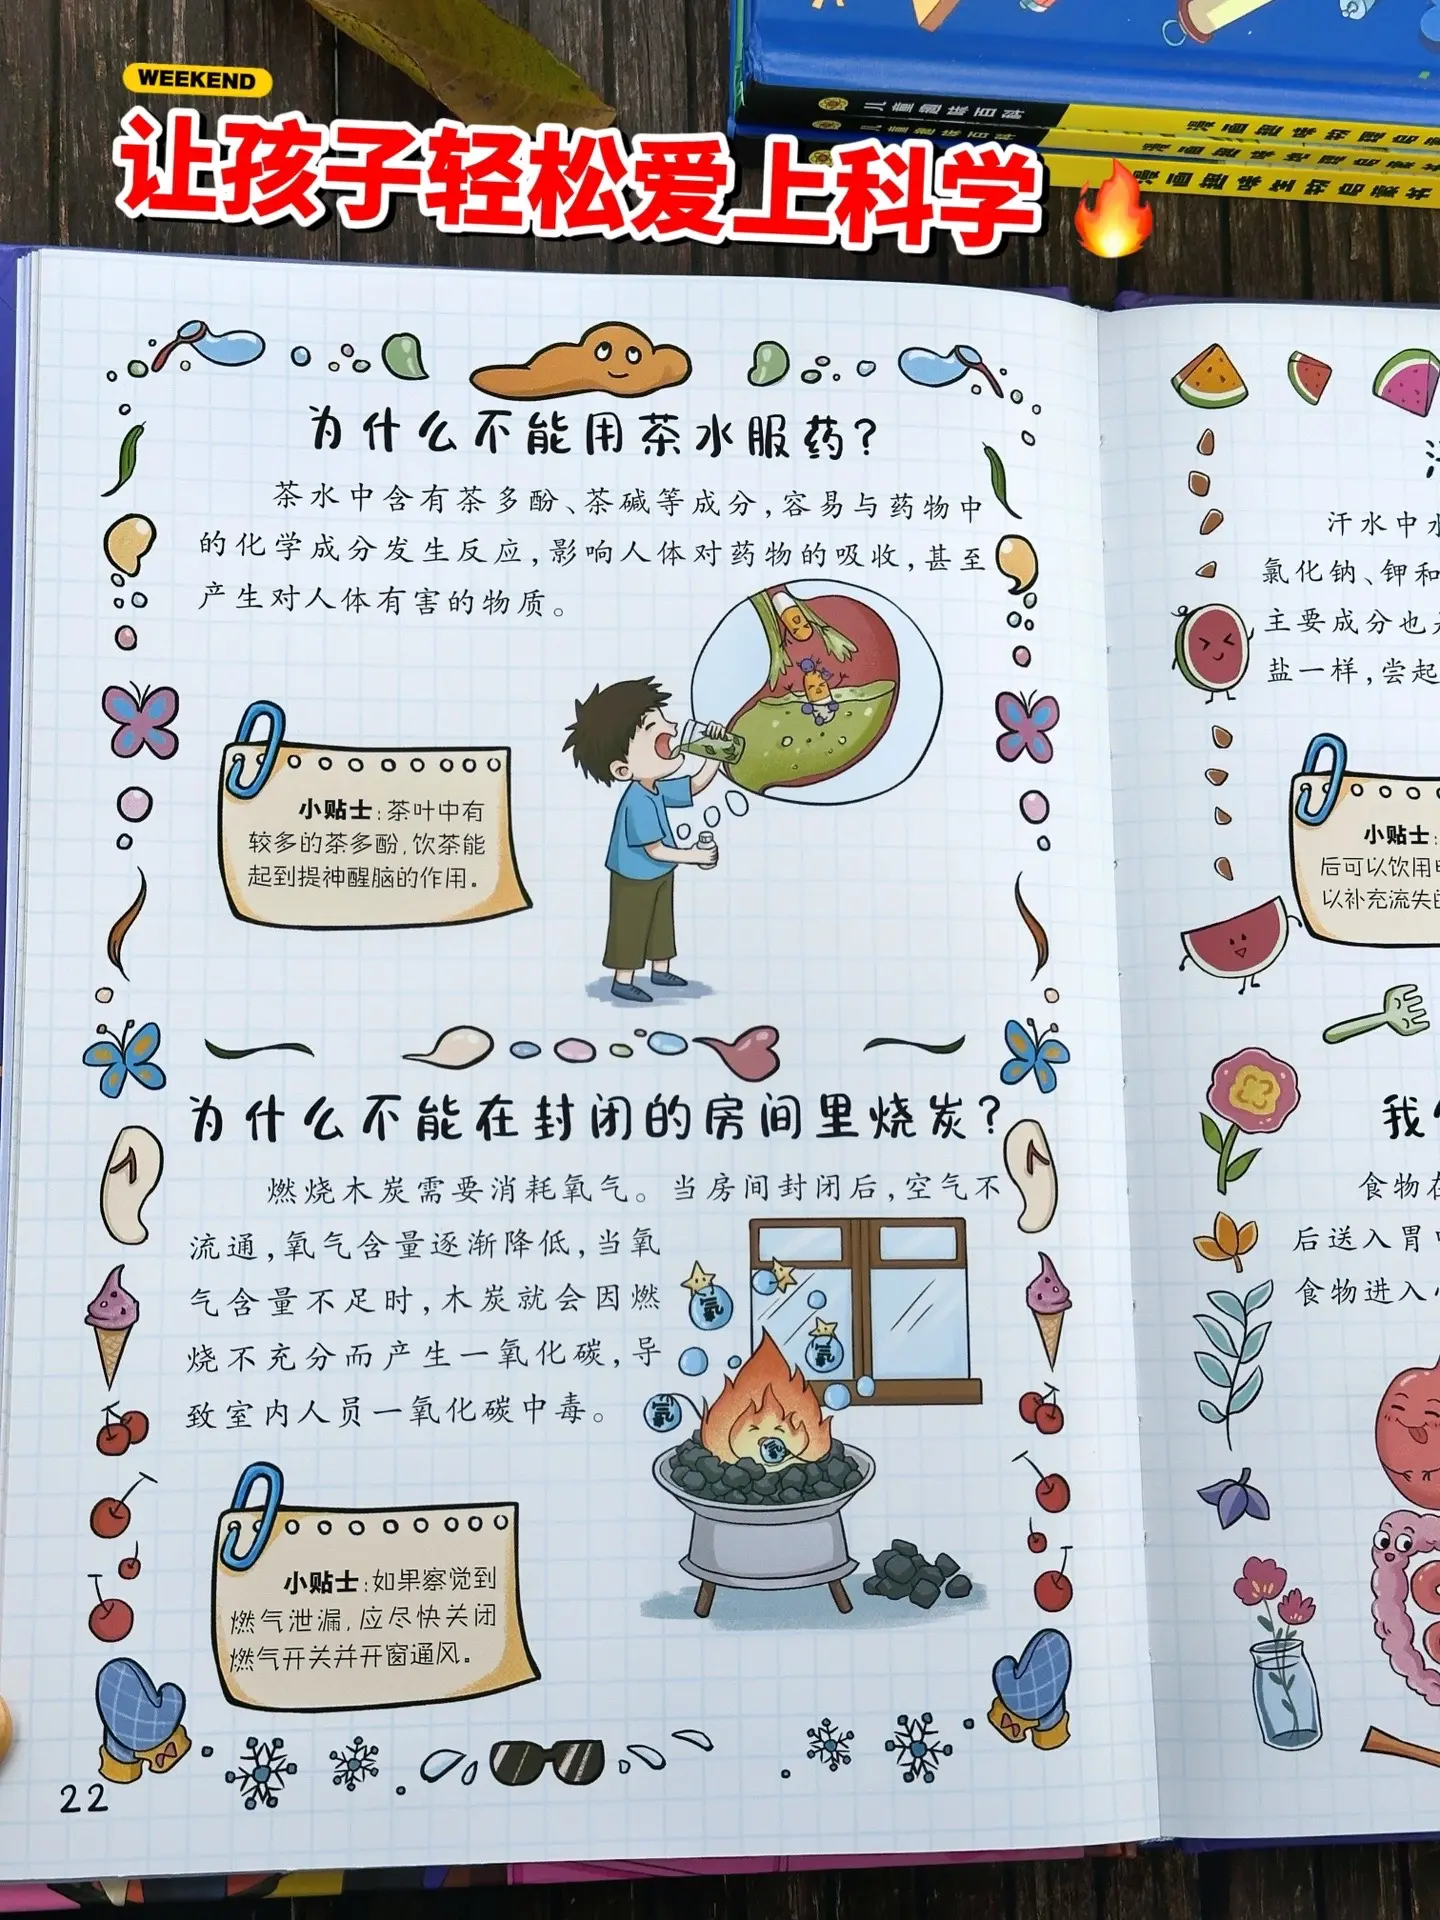 WEEKEND
让孩子轻松爱上科学
儿童趣味百科
儿童趣味百科
为什么不能用茶水服药?
茶水中含有茶多酚、茶碱等成分,容易与药物中
的化学成分发生反应,影响人体对药物的吸收,甚至
产生对人体有害的物质。
小贴士:茶叶中有
较多的茶多酚,饮茶能
起到提神醒脑的作用。
为什么不能在封闭的房间里烧炭?
燃烧木炭需要消耗氧气。当房间封闭后,空气不
流通,氧气含量逐渐降低,当氧
气含量不足时,木炭就会因燃
烧不充分而产生一氧化碳,导
致室内人员一氧化碳中毒。
氧
氧
氧
氧
小贴士:如果察觉到
燃气泄漏,应尽快关闭
燃气开关并开窗通风。
22
汗水中水
氯化钠、钾和
主要成分也
盐一样,尝起
小贴士:
后可以饮用
以补充流失的
我
食物在
后送入胃
食物进入